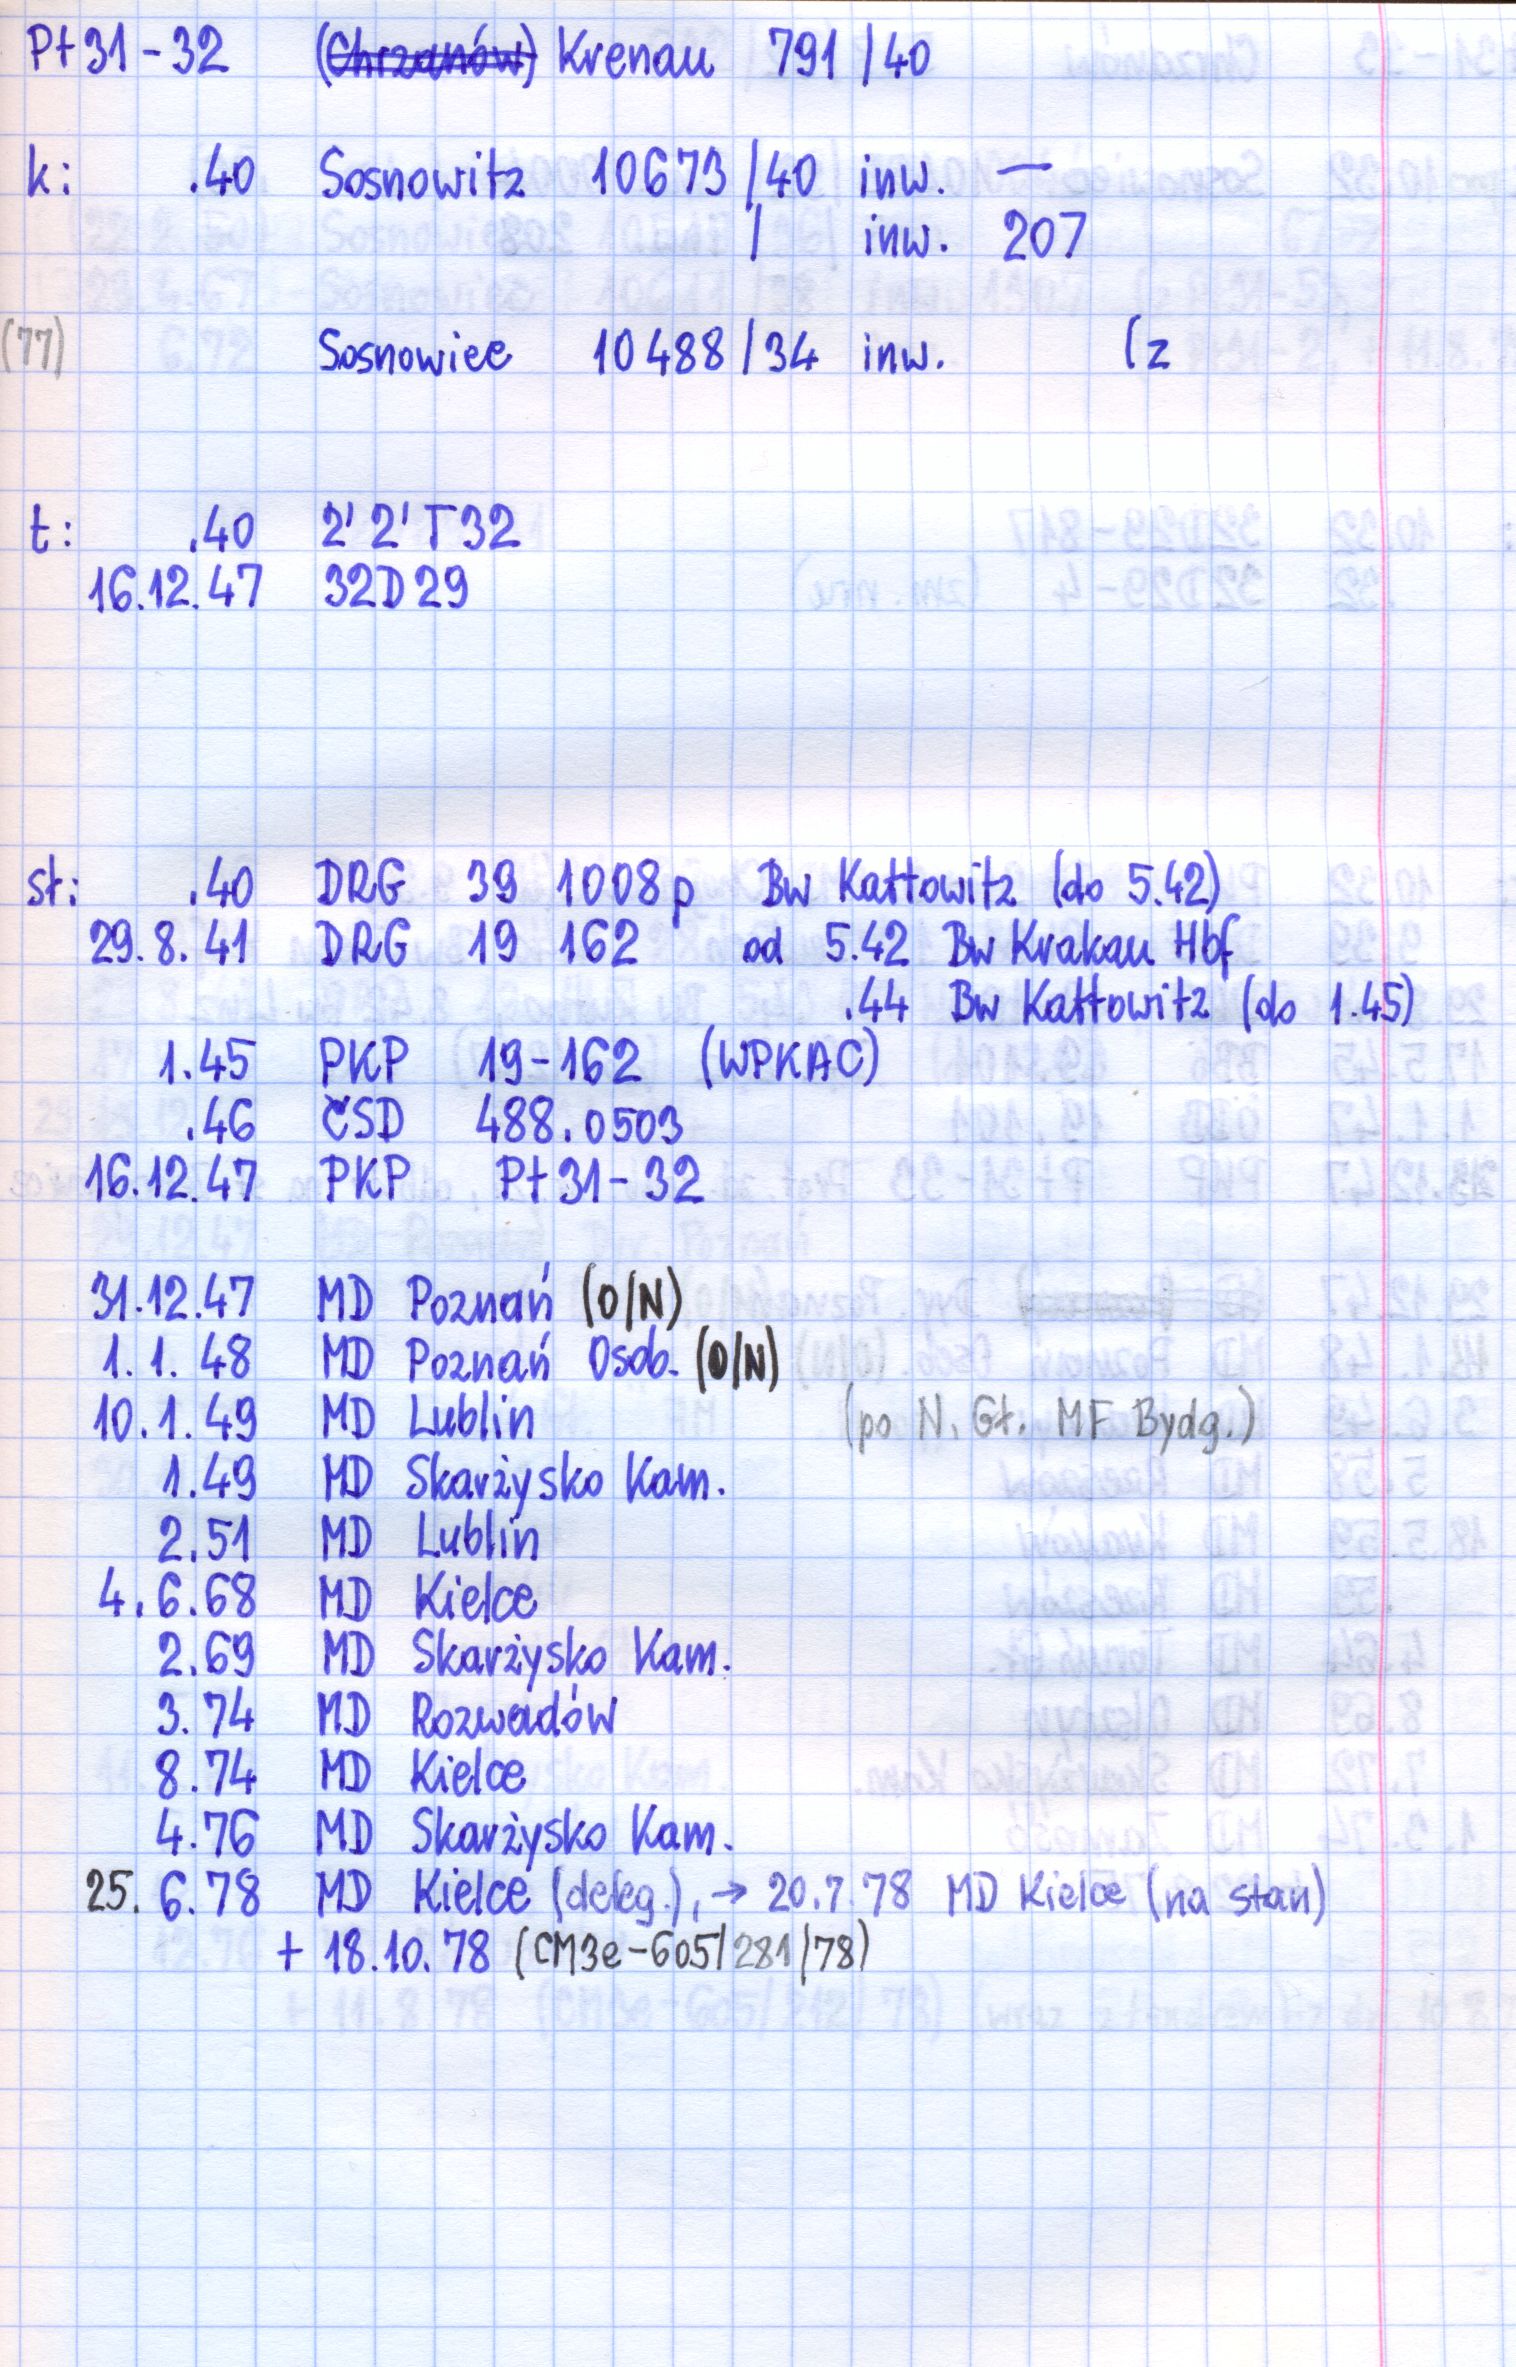 Pt31-32 (Chrzanów) Krenau 791/40
k: .40 Sosnowitz 10673/40 inw. —
/ inw. 207
(77) Sosnowiec 10488/34 inw. (z
t: .40 2'2'T32
16.12.47 32D29
sł: .40 DRG 39 1008p Bw Kattowitz (do 5.42)
29.8.41 DRG 19 162 od 5.42 Bw Krakau Hbf
.44 Bw Kattowitz (do 1.45)
1.45 PKP 19-162 (WPKAC)
.46 ČSD 488.0503
16.12.47 PKP Pt31-32
31.12.47 MD Poznań (O/N)
1.1.48 MD Poznań Osob. (O/N)
10.1.49 MD Lublin (po N. Gł. MF Bydg.)
1.49 MD Skarżysko Kam.
2.51 MD Lublin
4.6.68 MD Kielce
2.69 MD Skarżysko Kam.
3.74 MD Rozwadów
8.74 MD Kielce
4.76 MD Skarżysko Kam.
25.6.78 MD Kielce (deleg.), → 20.7.78 MD Kielce (na stan)
+ 18.10.78 (CM3e-605/281/78)